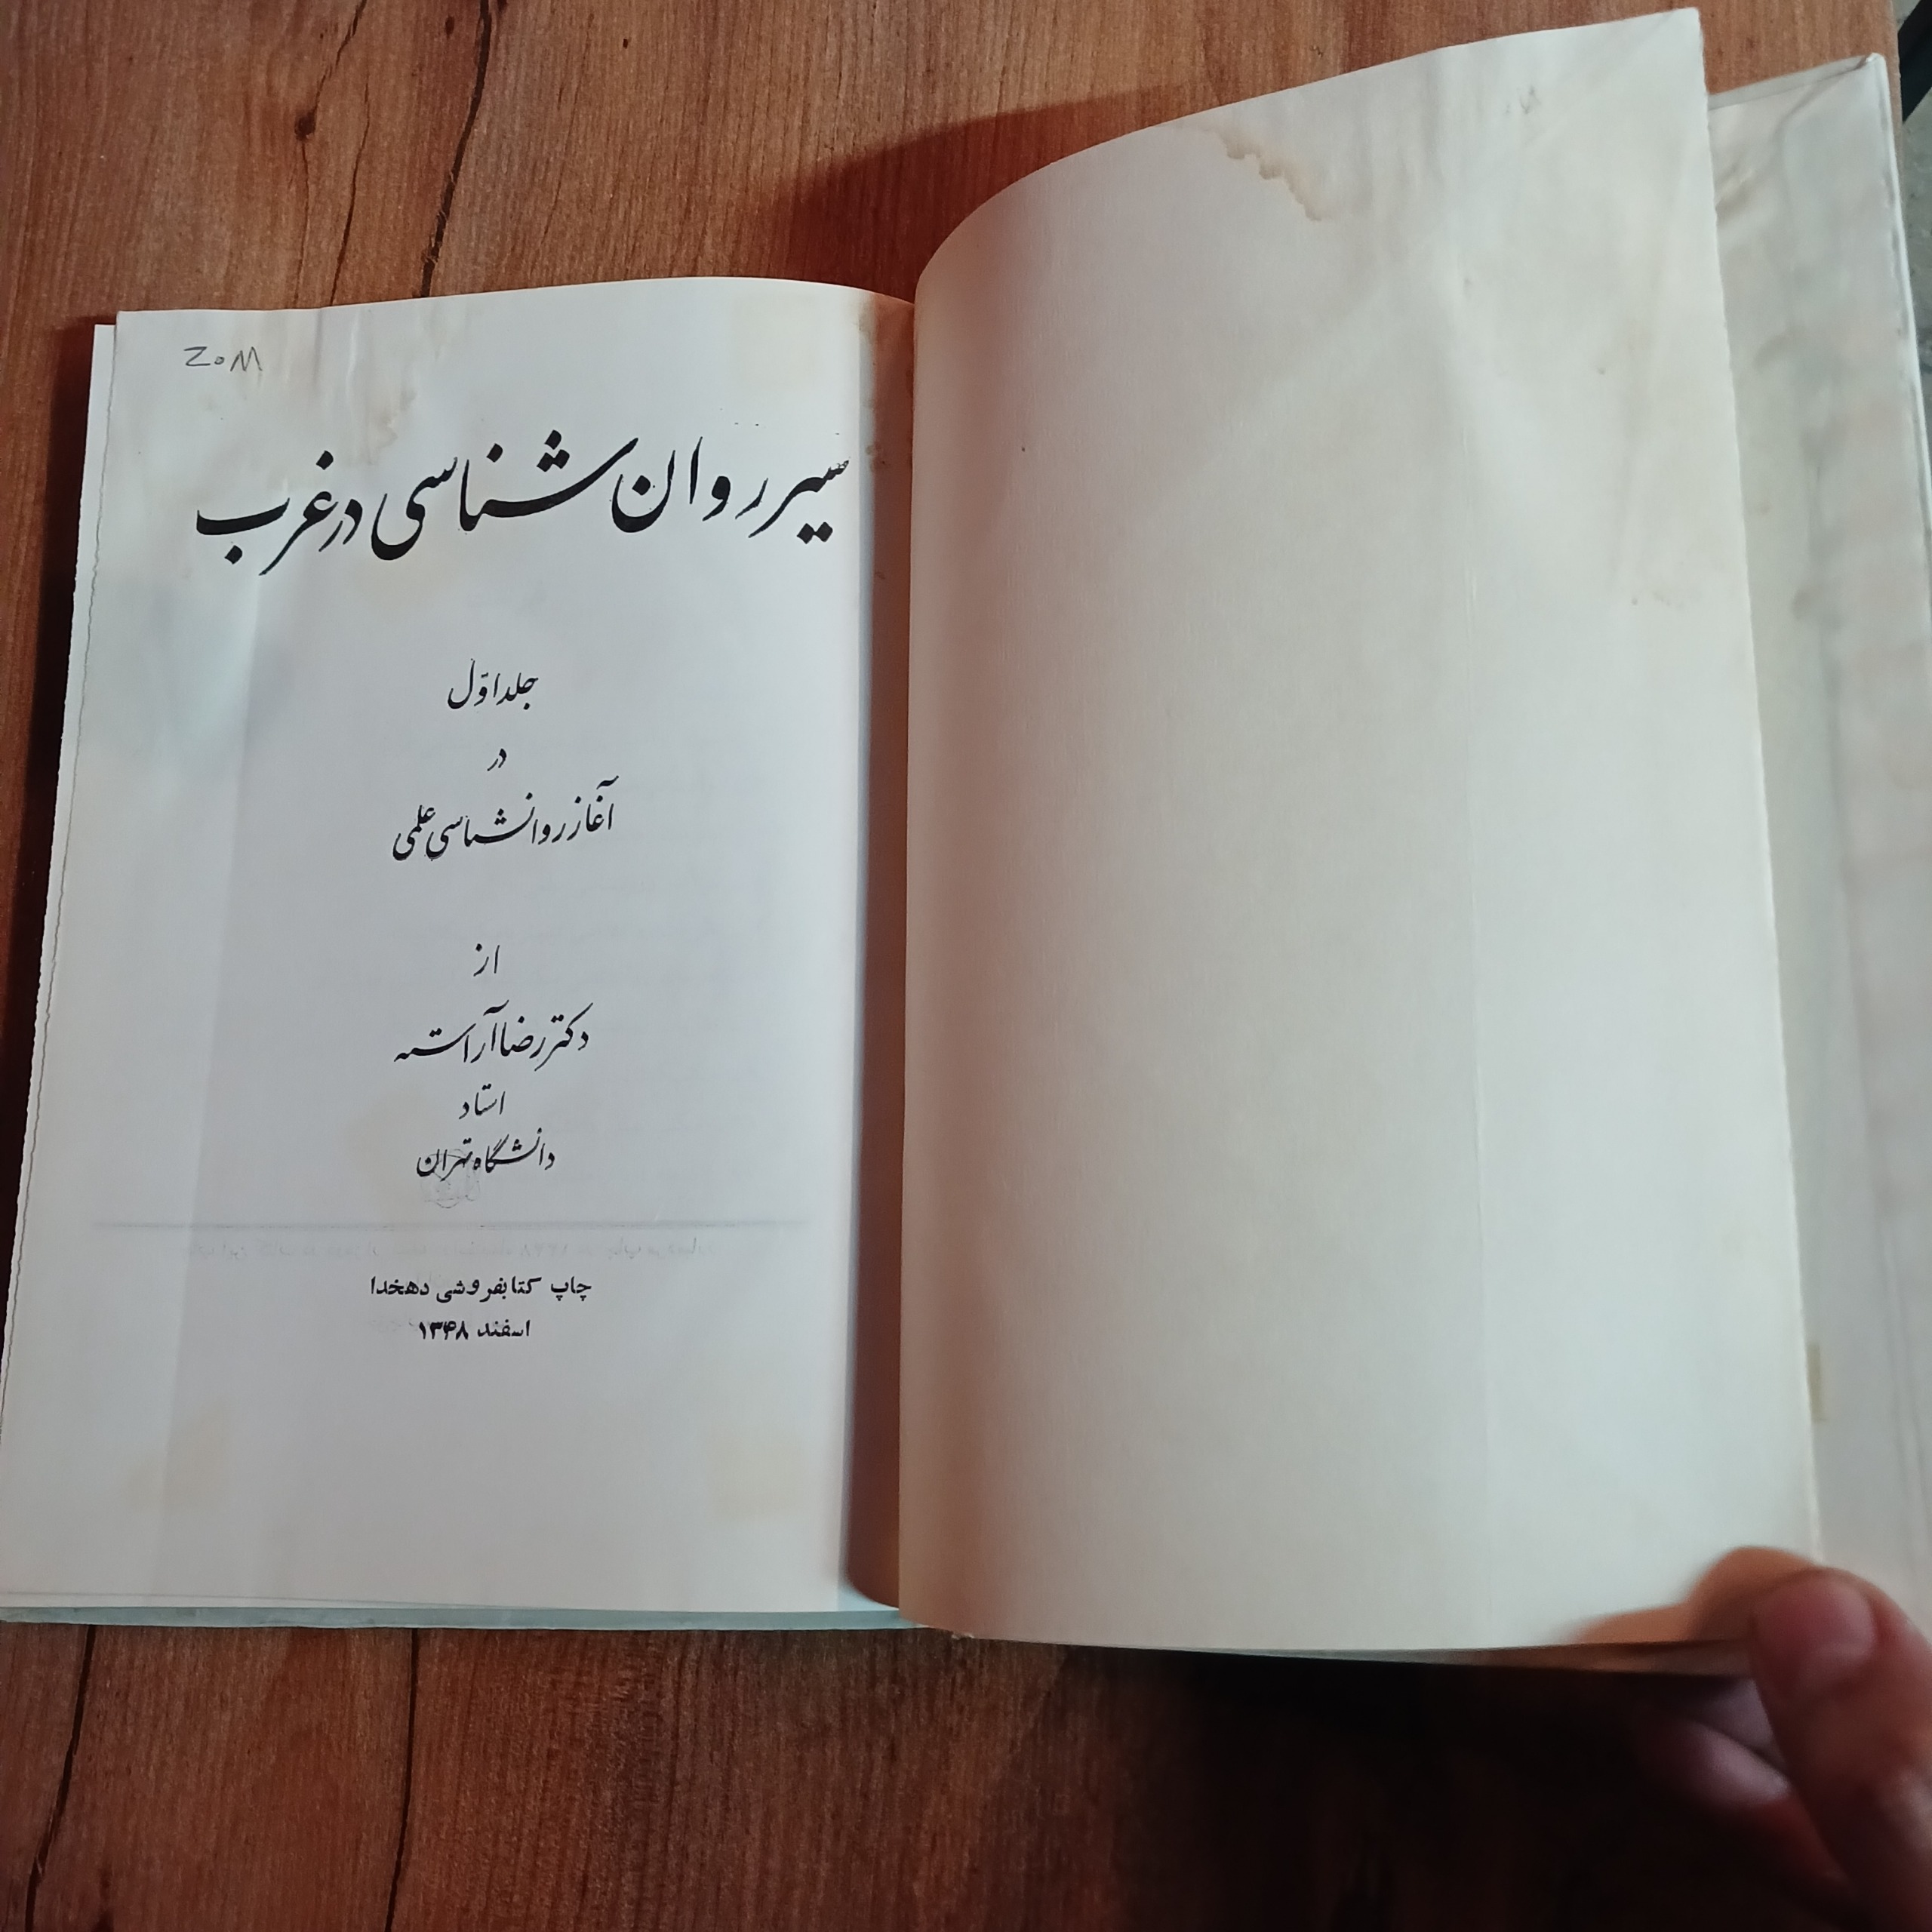 ZoM
سیر روان شناسی در غرب
جلد اوّل
در
آغاز روانشناسی علمی
از
دکتر رضا آراسته
استاد
دانشگاه تهران
چاپ کتابفروشی دهخدا
اسفند ۱۳۴۸